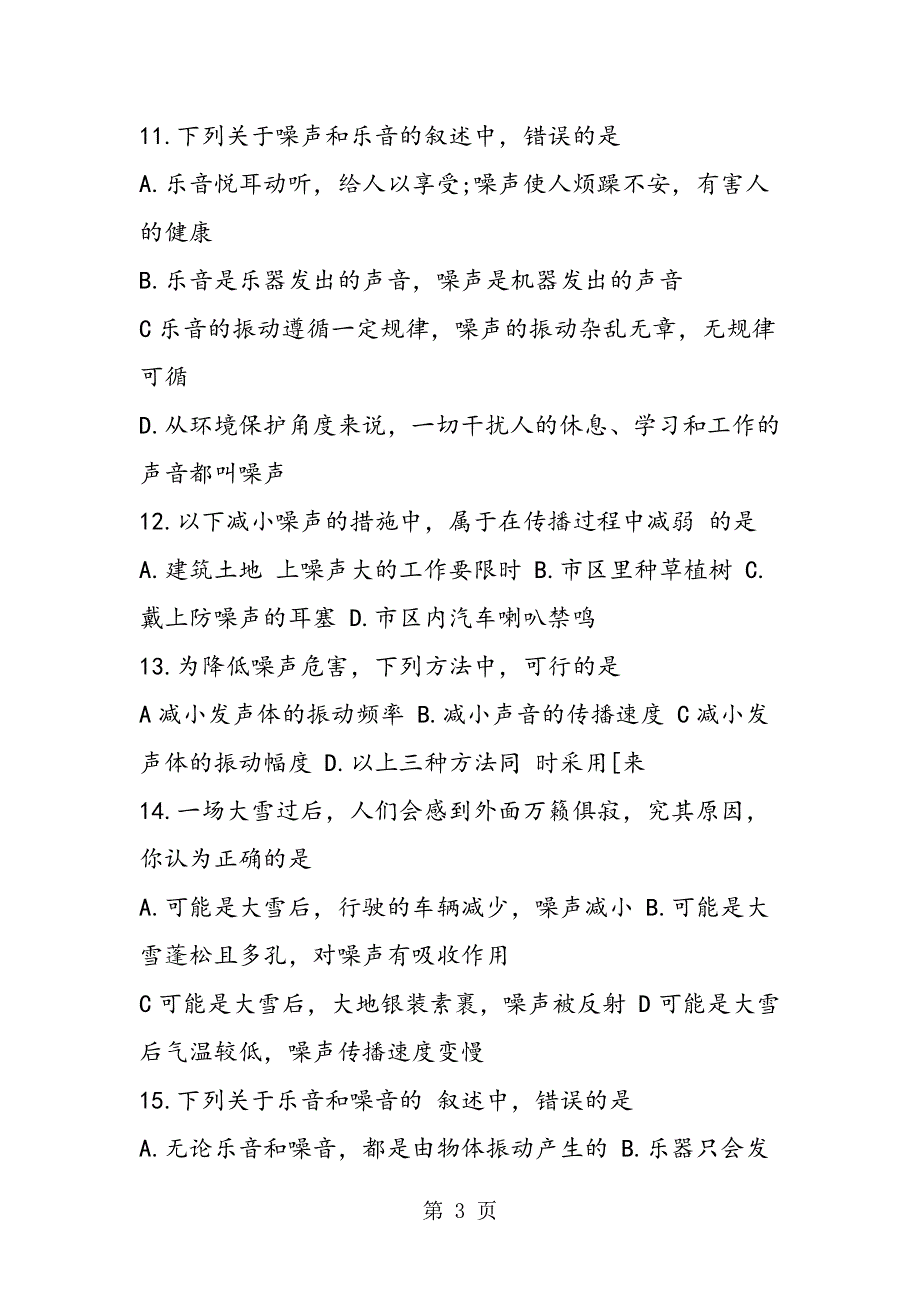 11.下列关于噪声和乐音的叙述中，错误的是
A.乐音悦耳动听，给人以享受;噪声使人烦躁不安，有害人
的健康
B.乐音是乐器发出的声音，噪声是机器发出的声音
C乐音的振动遵循一定规律，噪声的振动杂乱无章，无规律
可循
D.从环境保护角度来说，一切干扰人的休息、学习和工作的
声音都叫噪声
12.以下减小噪声的措施中，属于在传播过程中减弱 的是
A.建筑土地 上噪声大的工作要限时 B.市区里种草植树 C.
戴上防噪声的耳塞 D.市区内汽车喇叭禁鸣
13.为降低噪声危害，下列方法中，可行的是
A减小发声体的振动频率 B.减小声音的传播速度 C减小发
声体的振动幅度 D.以上三种方法同 时采用[来
14.一场大雪过后，人们会感到外面万籁俱寂，究其原因，
你认为正确的是
A.可能是大雪后，行驶的车辆减少，噪声减小 B.可能是大
雪蓬松且多孔，对噪声有吸收作用
C可能是大雪后，大地银装素裹，噪声被反射 D可能是大雪
后气温较低，噪声传播速度变慢
15.下列关于乐音和噪音的 叙述中，错误的是
A.无论乐音和噪音，都是由物体振动产生的 B.乐器只会发
第 3 页